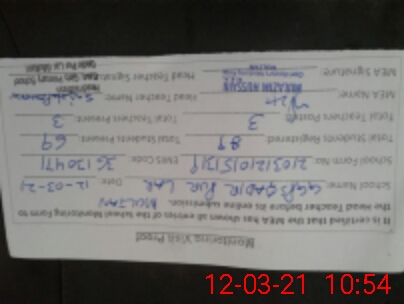 Monitoring Visit Proof
It is certified that the MEA has shown all entries of the School Monitoring Form to
the Head Teacher before its online submission. MULTAN
School Name: GGPS QADIR PUR LAR Date: 12-03-21
School Form No: EMIS Code: 36130471
Total Students Registered: 89 Total Students Present: 69
Total Teachers Posted: 3 Total Teachers Present: 3
MEA Name: Head Teacher Name:
MEA Signature: Head Teacher Signature:
12-03-21 10:54